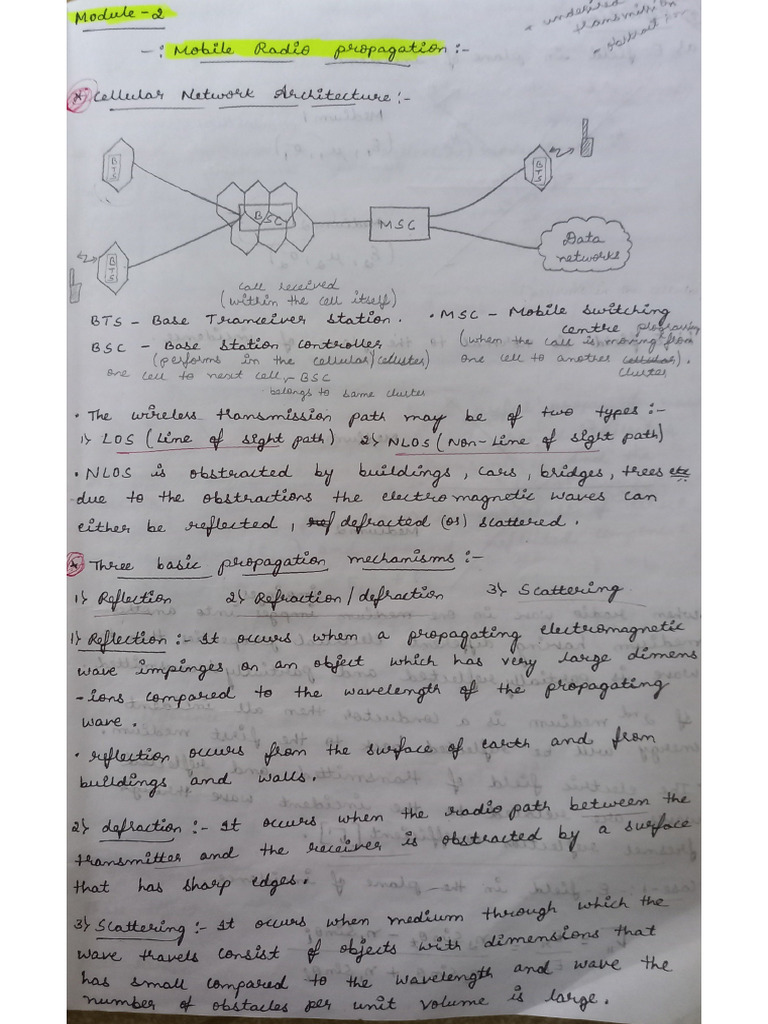 Module-2
-: Mobile Radio propagation :-
* Cellular Network Architecture :-
BTS
BTS
BSC
MSC
BTS
Data
networks
call received
(within the cell itself)
BTS - Base Tranceiver Station.
• MSC - Mobile switching
centre
BSC - Base Station controller
(when the call is moving from
(performs in the cellular/cluster)
one cell to another cellular).
cluster
one cell to next cell,- BSC
belongs to same cluster
• The wireless transmission path may be of two types :-
1) LOS (Line of sight path) 2) NLOS (Non-Line of sight path)
• NLOS is obstracted by buildings, cars, bridges, trees etc
due to the obstractions the electromagnetic waves can
either be reflected, ref defracted (or) scattered.
* Three basic propagation mechamisms :-
1) Reflection 2) Refraction/defraction 3) Scattering
1) Reflection :- It occurs when a propagating electromagnetic
wave impinges on an object which has very large dimens
-ions compared to the wavelength of the propagating
wave.
• reflection occurs from the surface of earth and from
buildings and walls.
2) defraction :- It occurs when the radio path between the
transmitter and the receiver is obstracted by a surface
that has sharp edges.
3) Scattering :- It occurs when medium through which the
wave travels consist of objects with dimensions that
has small compared to the wavelength and wave the
number of obstacles per unit volume is large.